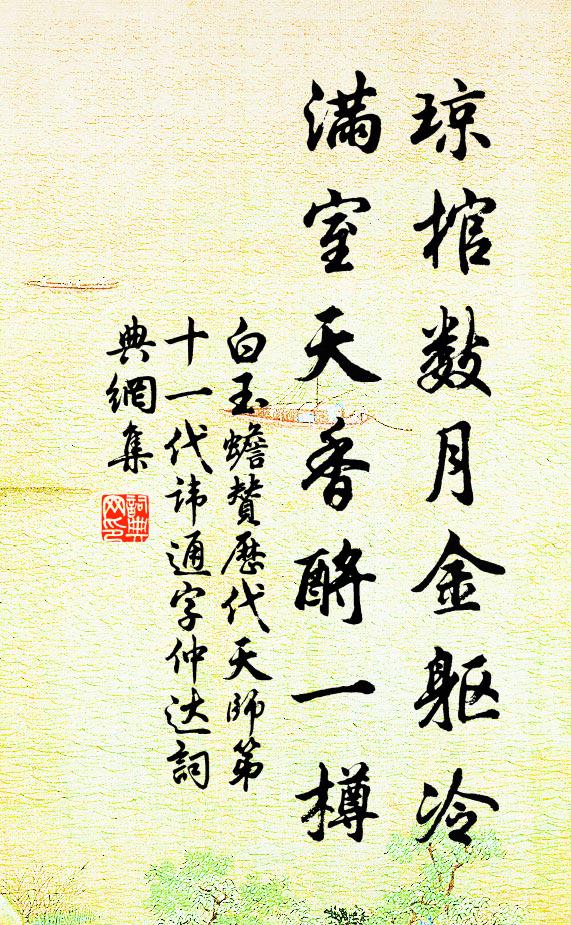 琼棺数月金躯冷
满室天香酹一樽
白玉蟾赞历代天师第
十一代讳通字仲达词
典網集
詞典网印